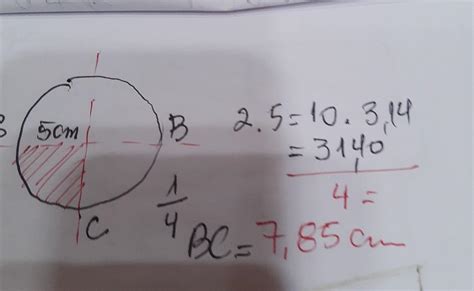 5cm
B
C
2.5=10.3,14
=31,40
4=
1
4
BC=7,85cm